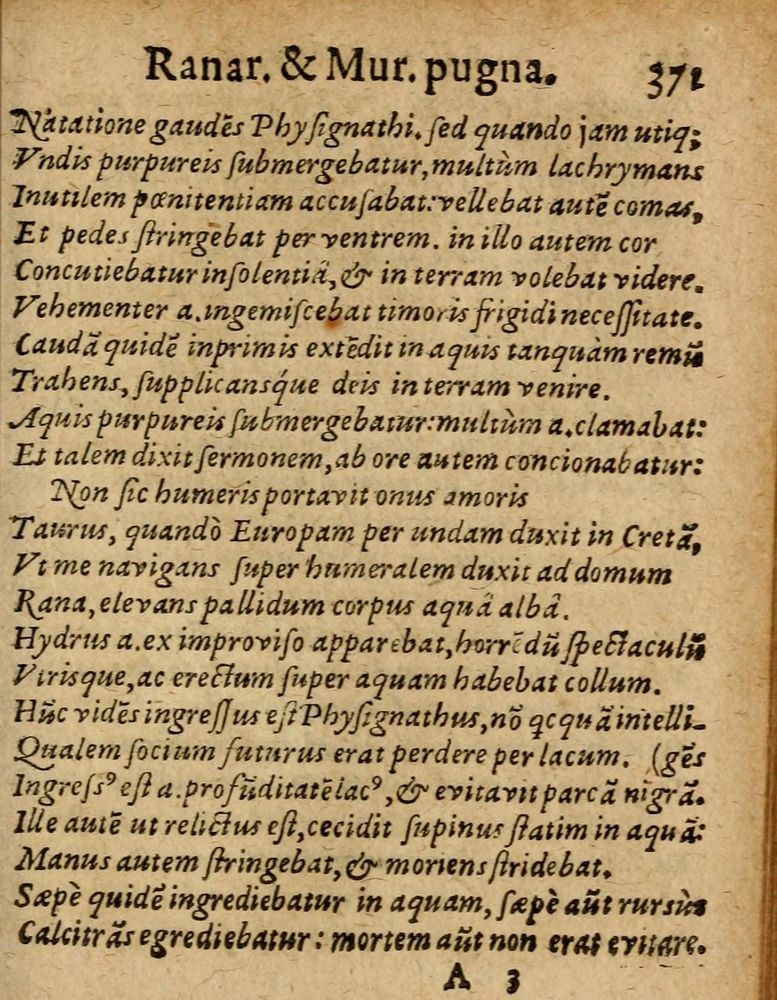 Ranar. & Mur. pugna. 371
Natatione gaudẽs Phyſignathi. ſed quando jam utiq;
Vndis purpureis ſubmergebatur, multùm lachrymans
Inutilem pœnitentiam accuſabat: vellebat autẽ comas,
Et pedes ſtringebat per ventrem. in illo autem cor
Concutiebatur inſolentiâ, & in terram volebat videre.
Vehementer a. ingemiſcebat timoris frigidi neceſſitate.
Caudã quidẽ inprimis extẽdit in aquis tanquàm remũ
Trahens, ſupplicansq́ue deis in terram venire.
Aquis purpureis ſubmergebatur: multùm a. clamabat:
Et talem dixit ſermonem, ab ore autem concionabatur:
Non ſic humeris portavit onus amoris
Taurus, quandò Europam per undam duxit in Cretã,
Vt me navigans ſuper humeralem duxit ad domum
Rana, elevans pallidum corpus aquâ albâ.
Hydrus a. ex improviſo apparebat, horrẽdũ ſpectaculũ
Vtrisque, ac erectum ſuper aquam habebat collum.
Hũc vidẽs ingreſſus eſt Phyſignathus, nõ qcquã intelli-
Qualem ſocium futurus erat perdere per lacum. (gẽs
Ingreſsꝰ eſt a. profũditatẽ lacꝰ, & evitavit parcã nigrã.
Ille autẽ ut relictus eſt, cecidit ſupinus ſtatim in aquã:
Manus autem ſtringebat, & moriens ſtridebat.
Sæpè quidẽ ingrediebatur in aquam, ſæpè aũt rursùs
Calcitrãs egrediebatur: mortem aũt non erat evitare.
A 3